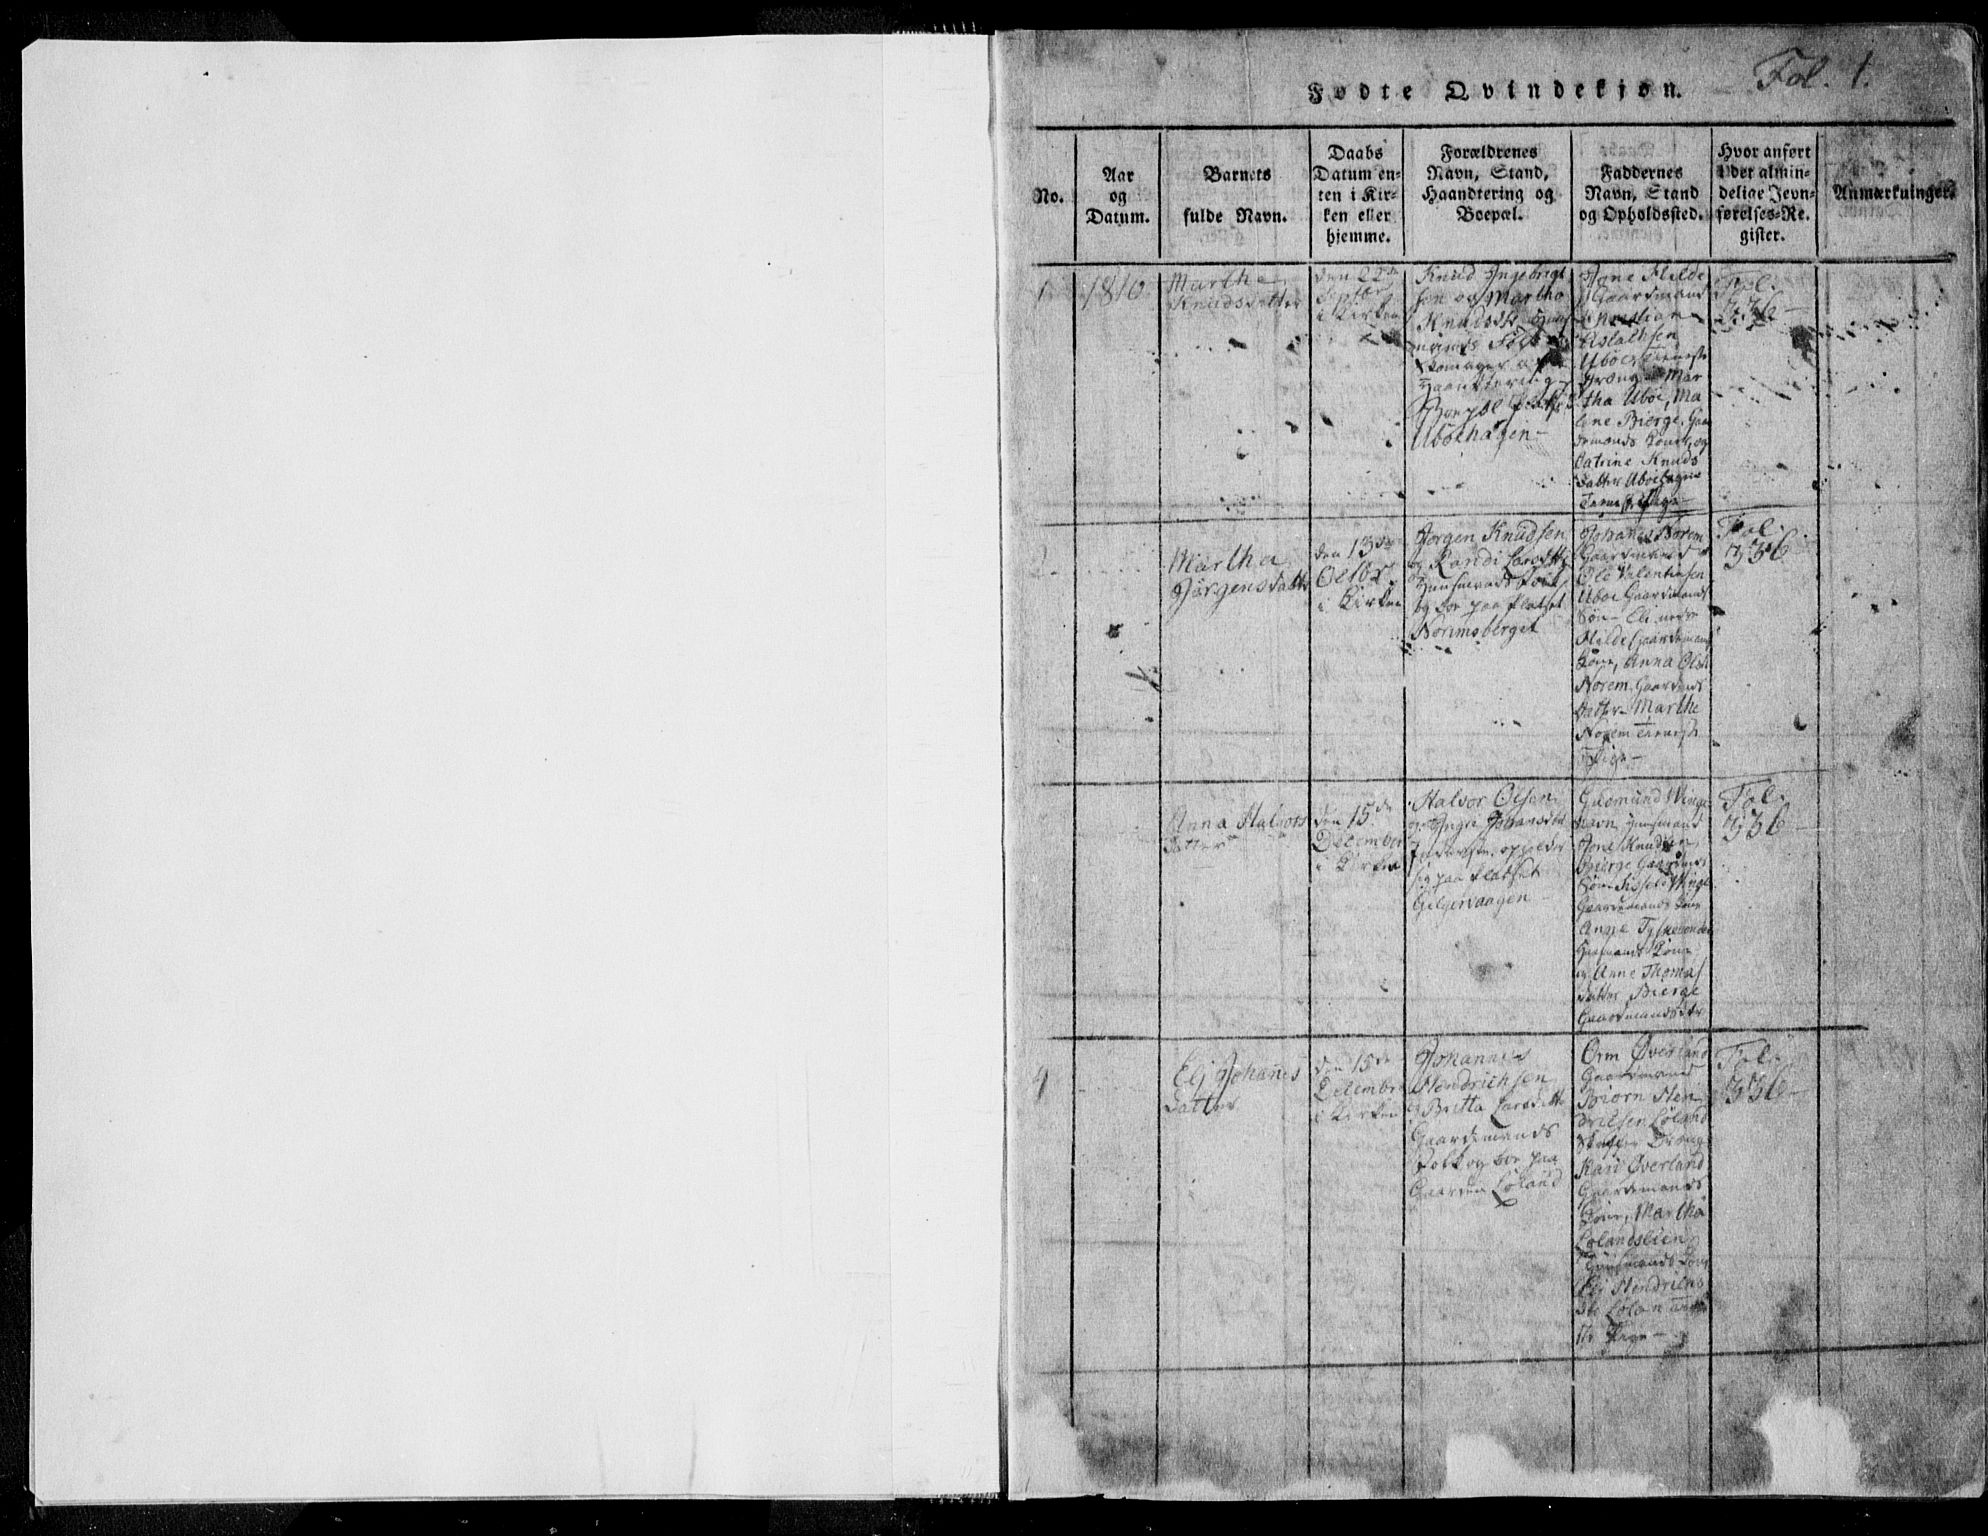 Fødte Qvindekjøn.
Fol. 1.
No.
Aar
og
Datum.
Barnets
fulde Navn.
Daabs
Datum en-
ten i Kir-
ken eller
hjemme.
Forældrenes
Navn, Stand,
Haandtering og
Boepæl.
Faddernes
Navn, Stand
og Opholdssted.
Hvor anført
i det almin-
delige Jevn-
førelses-Re-
gister.
Anmærkninger.
1
1816
Martha
Knudsdatter
den 22de
Septbr
i Kirken
Knud Ingebrigt
sen og Martha
Knudsdtr
Haandtering
Boepæl
Ubøehagen
Jone Hilde
Gaardmand
Christian
Aslachsen
Ubøe
Mar
tha Ubøe, Ma
lene Bierge
og
Catrine Knuds
datter Ubøehagen
Tieneste Pige
Fol.
336
2
Martha
Jørgensdatter
den 13de
Octbr
i Kirken
Jørgen Knudsen
og Randi Larsdtr
Huusmands Folk
og boe paa Pladset
Noremsberget
Johanes Norem
Gaardmand
Ole Valentinsen
Ubøe Gaardmands
Søn - Eli nedre
Hilde Gaardmands
Kone, Anna Olsdtr
Norem Gaardmands
datter - Marthe
Norem Tieneste
Pige
Fol.
336
Anna Halvors
datter
den 15de
December
i Kirken
Halvor Olsen
og Ingri Johansdtr
opholder
sig paa Pladset
Geilgervaagen
Gudmund Winge
Huusmand
Jone Knudsen
Bierge Gaardmands
Søn Sissele Winge
Gaardmands Kone
Anne Tyskelandet
Huusmands Kone
og Anne Thomas
datter Bierge
Gaardmandsdtr
Fol.
336
4
Eli Johanes
datter
den 15de
Decembr
i Kirken
Johannes
Hendrichsen
og Britta Larsdtr
Gaardemands
Folk og boe paa
Gaarden Løland
Orm Øverland
Gaardmand
Biørn Hen
drichsen Løland
Kari Øverland
Gaardemands
Kone, Martha
Lølandslien
Huusmands Kone
Eli Hendrichs
dtr Løland
Pige
Fol.
336